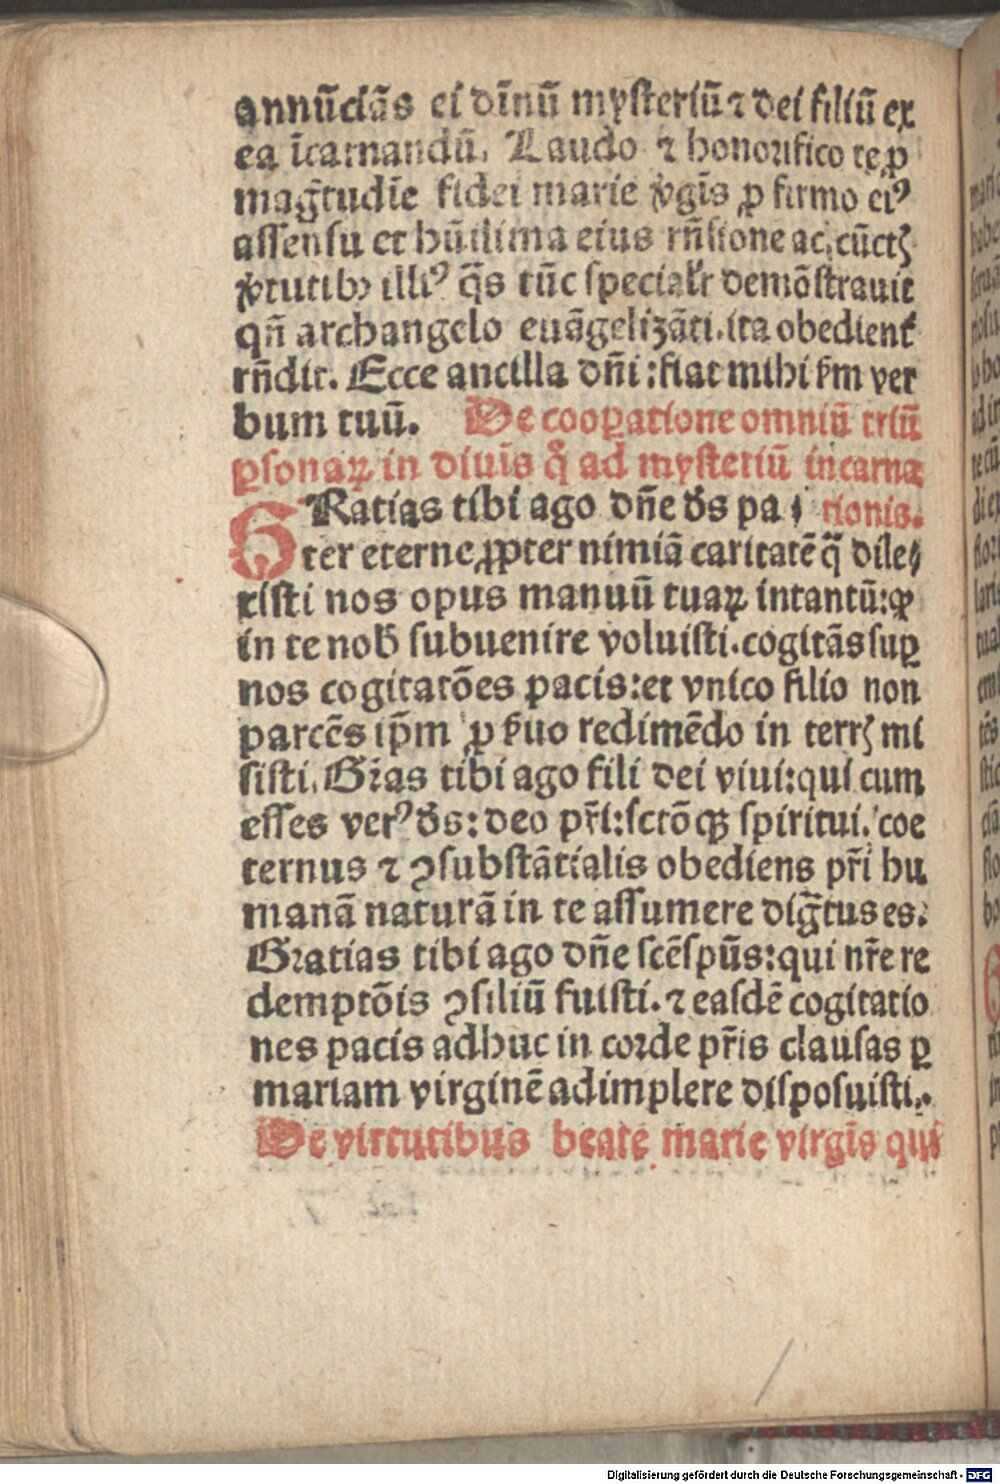 annūciās ei dīnū mysteriū ⁊ dei filiū ex
ea īcarnandū. Laudo ⁊ honorifico te ꝓ
mag̃tudīe fidei marie v̾gīs ꝓ firmo eiꝰ
assensu et hūilima eius rn̄sione ac cūctꝭ
v̾tutibꝫ illiꝰ q̄s tūc specialr̄ demōstrauit
qn̄ archangelo euāgelizāti. ita obedient̾
rn̄dit. Ecce ancilla dn̄i: fiat mihi ẜm ver
bum tuū. De cooꝑatione omniū triū
ꝑsonaꝝ in diuīs q̄ ad mysteriū incarna
GRatias tibi ago dn̄e de᷒s pa⸗ tionis.
ter eterne, ꝓpter nimiā caritatē q̄ dile⸗
xisti nos opus manuū tuaꝝ intantū: ꝙ
in te nob̄ subuenire voluisti. cogitās suꝑ
nos cogitatōes pacis: et vnico filio non
parcēs ip̄m ꝓ ẜuo redimēdo in terrꝭ mi
sisti. Gr̄as tibi ago fili dei viui: qui cum
esses verꝰ de᷒s: deo pr̄i: sctōqꝫ spiritui. coe
ternus ⁊ ꝯsubstātialis obediens pr̄i hu
manā naturā in te assumere dig̃tus es.
Gratias tibi ago dn̄e scēspūs: qui nr̄e re
demptōis ꝯsiliū fuisti. ⁊ easdē cogitatio
nes pacis adhuc in corde pr̄is clausas ꝑ
mariam virginē adimplere disposuisti.
De virtutibus beate marie virgīs qui
Digitalisierung gefördert durch die Deutsche Forschungsgemeinschaft - DFG